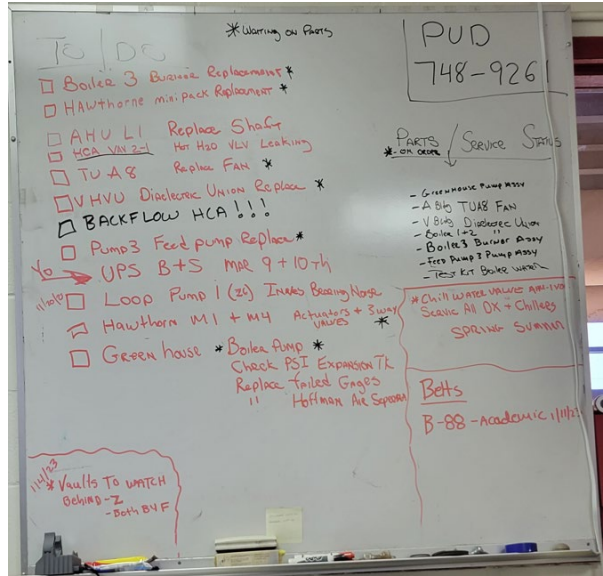 To / Do
* Waiting on Parts
Boiler 3 Burner Replacement *
Hawthorne minipack Replacement *
AHU L1 Replace Shaft
HCA VAV 2-1 Hot H2O VLV Leaking
TU A8 Replace Fan *
VHVU Dielectric Union Replace *
BACKFLOW HCA!!!
Pump3 Feed pump Replace *
UPS B+S MAR 9 + 10th
Loop Pump 1 (Z6) Bearing Noise
Hawthorn M1 + M4 Actuators + 3way
Valves *
Green house * Boiler Pump *
Check PSI Expansion TK
Replace failed Gages
" Hoffman Air
1/4/23
* Vaults To WATCH
Behind - Z
- Both B4F
PUD
748-926
Parts / Service Status
* - ON ORDER
- Greenhouse Pump Assy
- A Bldg TUA8 FAN
- V Bldg Dielectric Union
- Boiler 1+2 "
- Boiler 3 Burner Assy
- Feed Pump 3 Pump Assy
- Test Kit Boiler Water
* Chill WATER VALVE
Service All DX + Chillers
SPRING SUMMER
Belts
B-88 - Academic 1/11/2